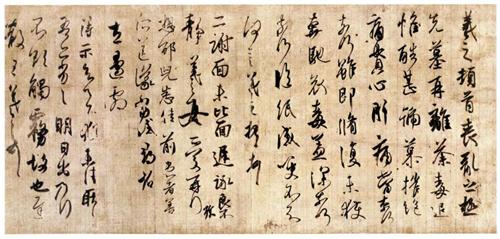 羲之頓首喪亂之極
先墓再離荼毒追
惟酷甚號慕摧絕
痛貫心肝痛當奈何
奈何雖即脩復未獲
奔馳哀毒益深奈何
奈何臨紙感哽不知
何言羲之頓首頓首
二謝面未比面遲詠良不
靜羲之女愛愛再拜
想邵兒悉佳前患者善
左邊劇
得示知足下猶未佳耿耿
吾亦劣劣明日出乃行
不欲觸霧故也遲
散王羲之頓首